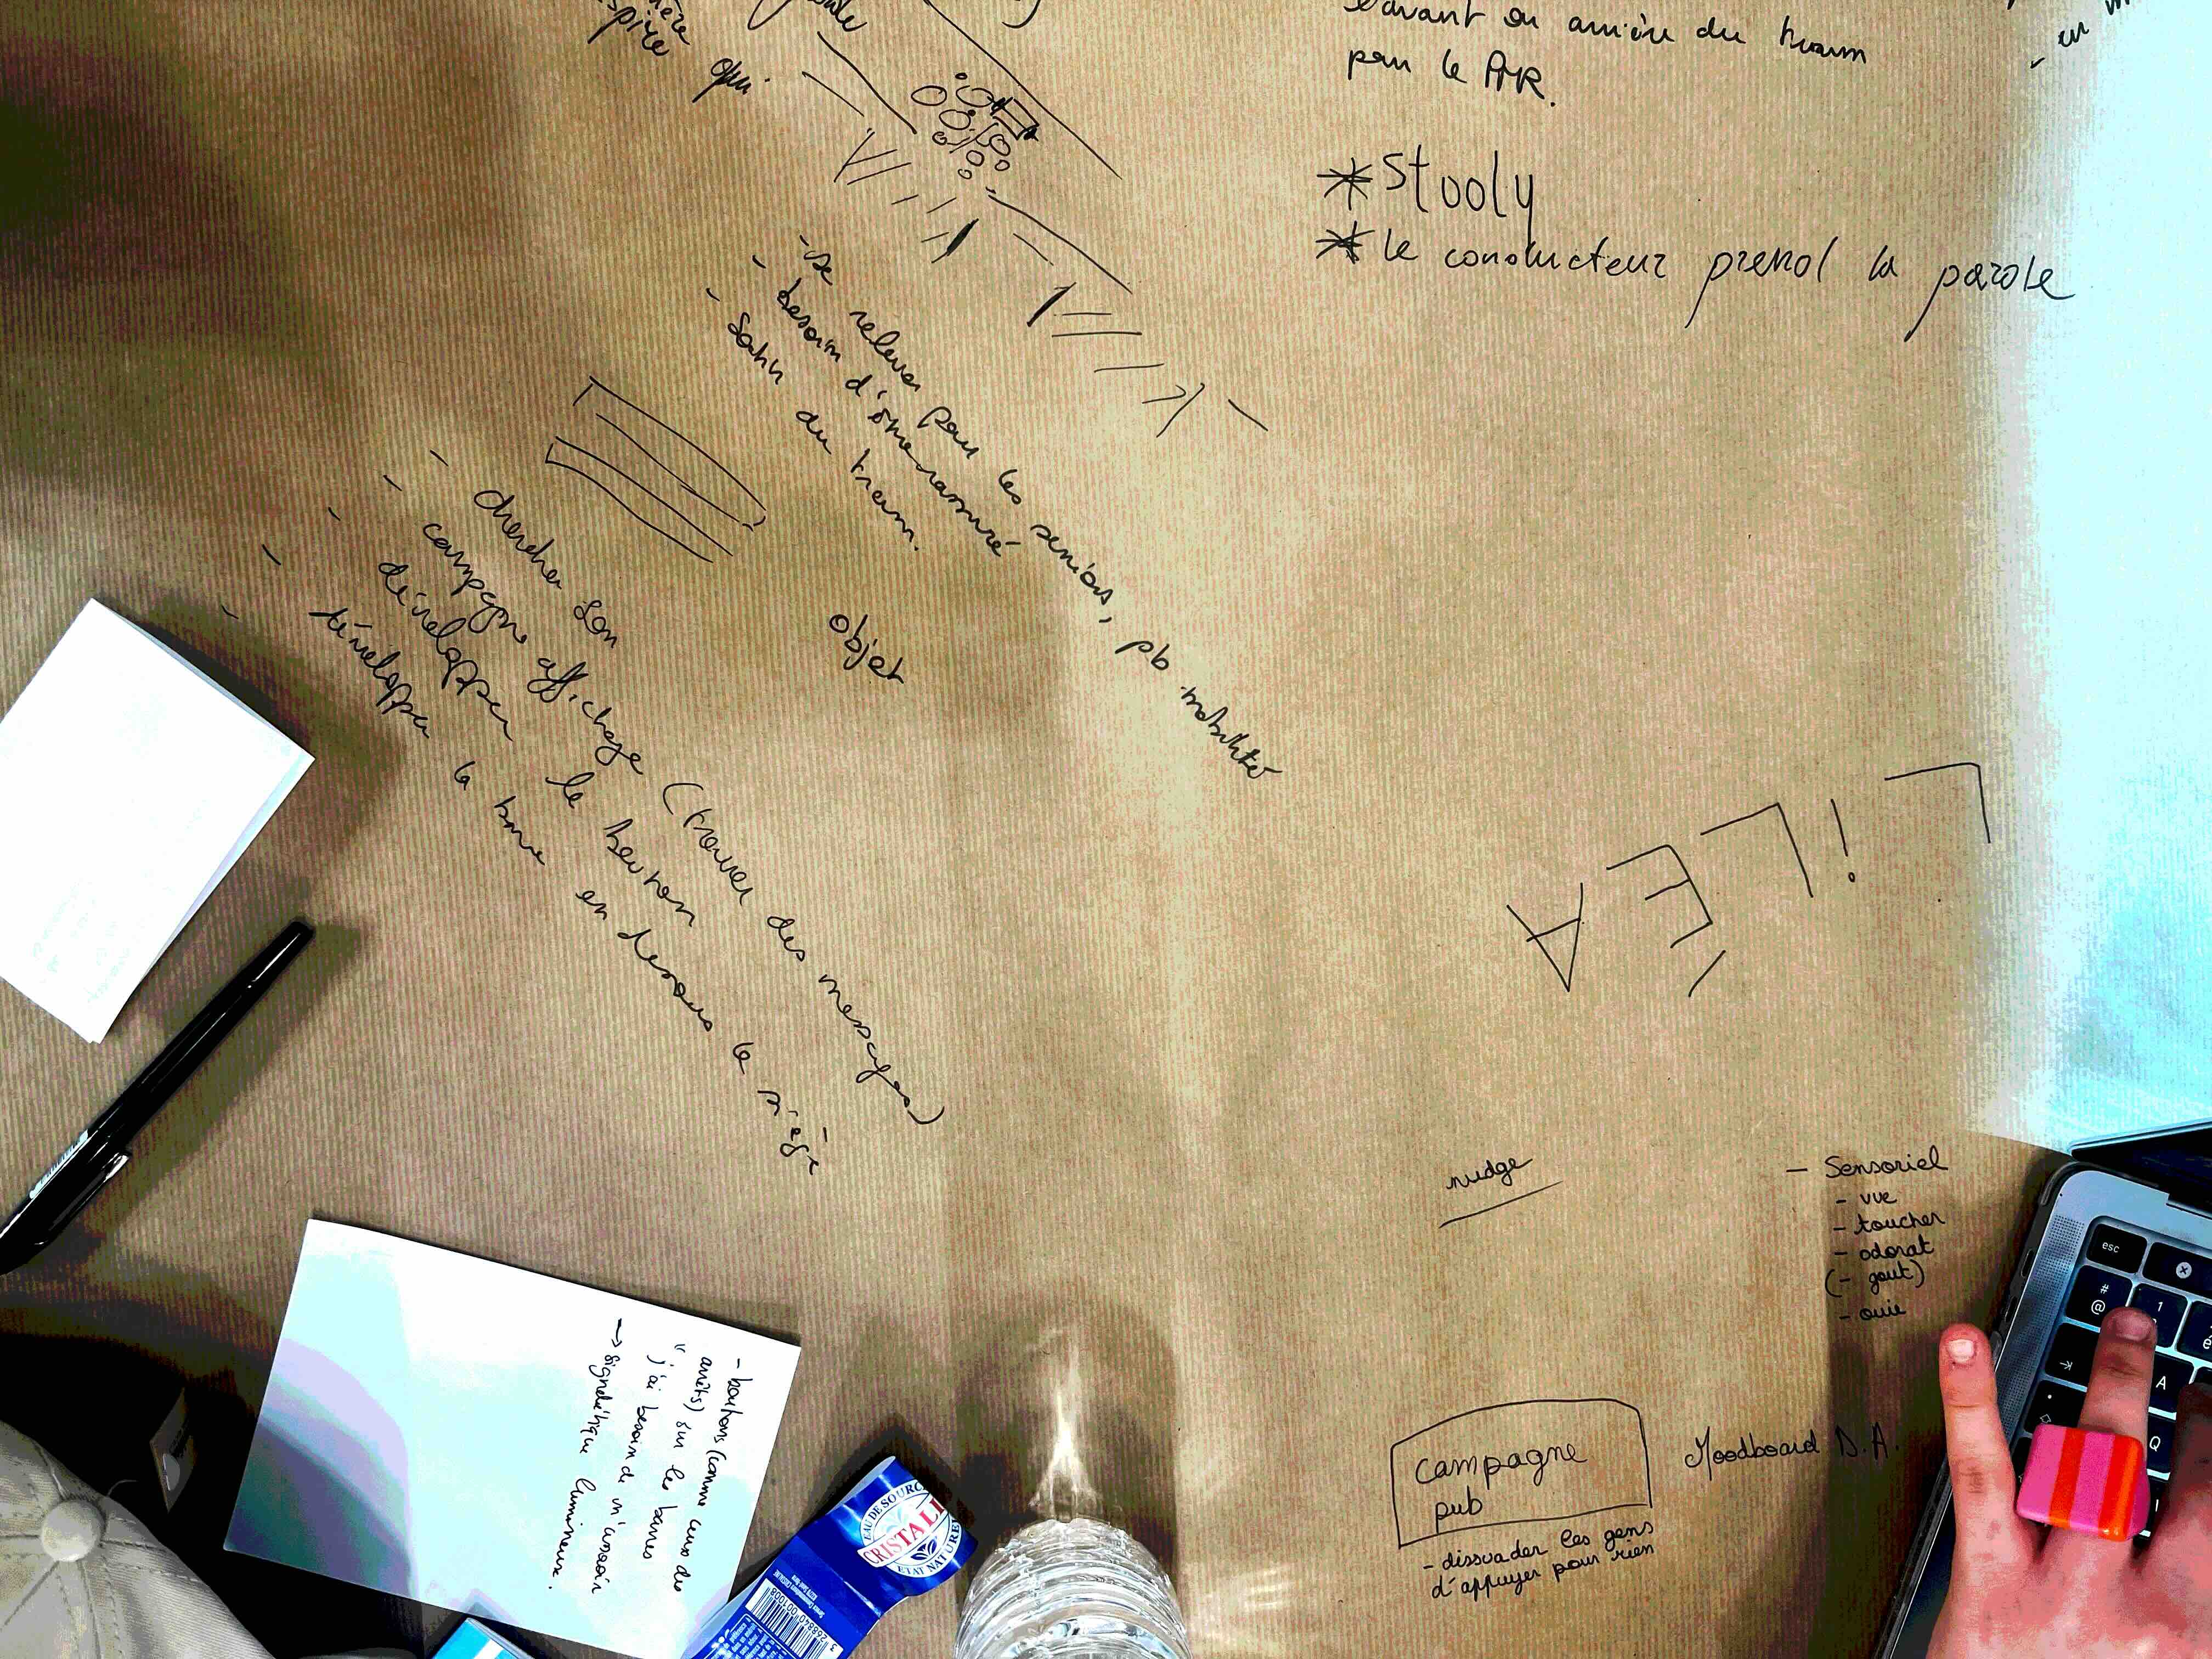 qui
l'avant ou arrière du tram
pour le PMR.
* Study
* le conducteur prend la parole
- se relever pour les seniors, pb mobilité
- besoin d'être rassuré
- Sortir du tram.
objet
- chercher son
- campagne affichage (trouver des messages)
- développer le bouton
- développer la barre en dessous le siège
LiLÉA
nudge
- Sensoriel
- vue
- toucher
- odorat
(- gout)
- ouie
campagne
pub
- dissuader les gens
d'appuyer pour rien
Moodboard D.A.
- boutons (comme ceux des
arrêts) sur les barres
"j'ai besoin de m'asseoir
→ signalétique lumineuse.
EAU DE SOURCE
CRISTALINE
3 268840 001008
esc
#
@
1
A
Q